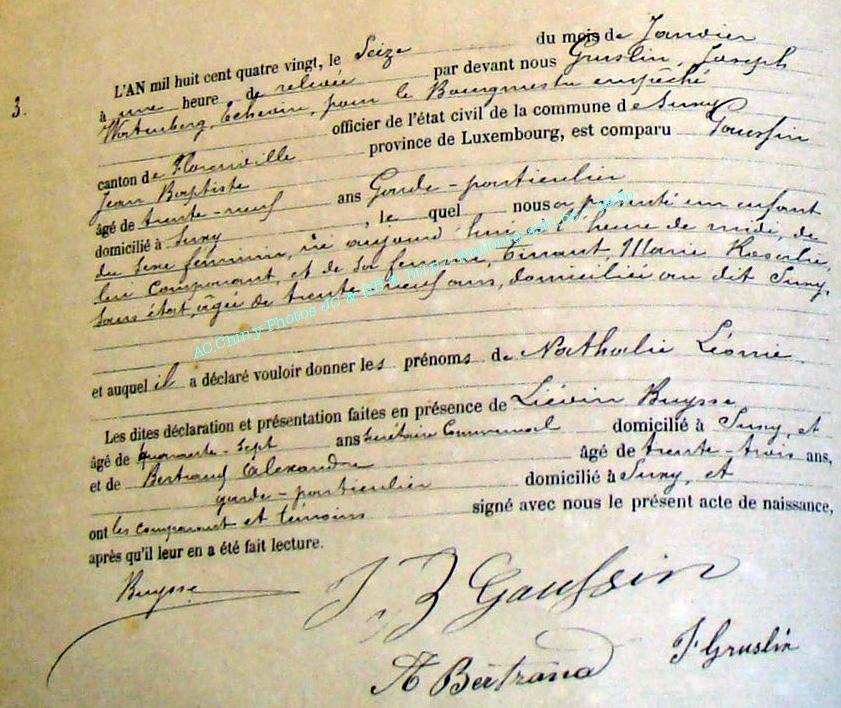 3.
L'AN mil huit cent quatre vingt, le Seize du mois de Janvier
à une heure de relevée par devant nous Gruslin, Joseph
Echevin, pour le Bourgmestre empêché
officier de l'état civil de la commune de Suxy
canton de Florenville province de Luxembourg, est comparu Goussin
Jean Baptiste
âgé de trente-neuf ans Garde-particulier
domicilié à Suxy, le quel nous a présenté un enfant
du sexe féminin, né aujourd'hui heure de midi, de
lui comparant, et de sa femme, Marie Rosalie,
sans état, âgée de trente neuf ans, domiciliée au dit Suxy,
et auquel il a déclaré vouloir donner les prénoms de Nathalie Léonie
Les dites déclaration et présentation faites en présence de Liévin Buysse
âgé de quarante-sept ans Secrétaire Communal domicilié à Suxy, et
et de Bertrand Alexandre âgé de trente-trois ans,
garde-particulier domicilié à Suxy, et
ont les comparant et témoins signé avec nous le présent acte de naissance,
après qu'il leur en a été fait lecture.
Buysse
J B Gaussin
A Bertrand
J Gruslin